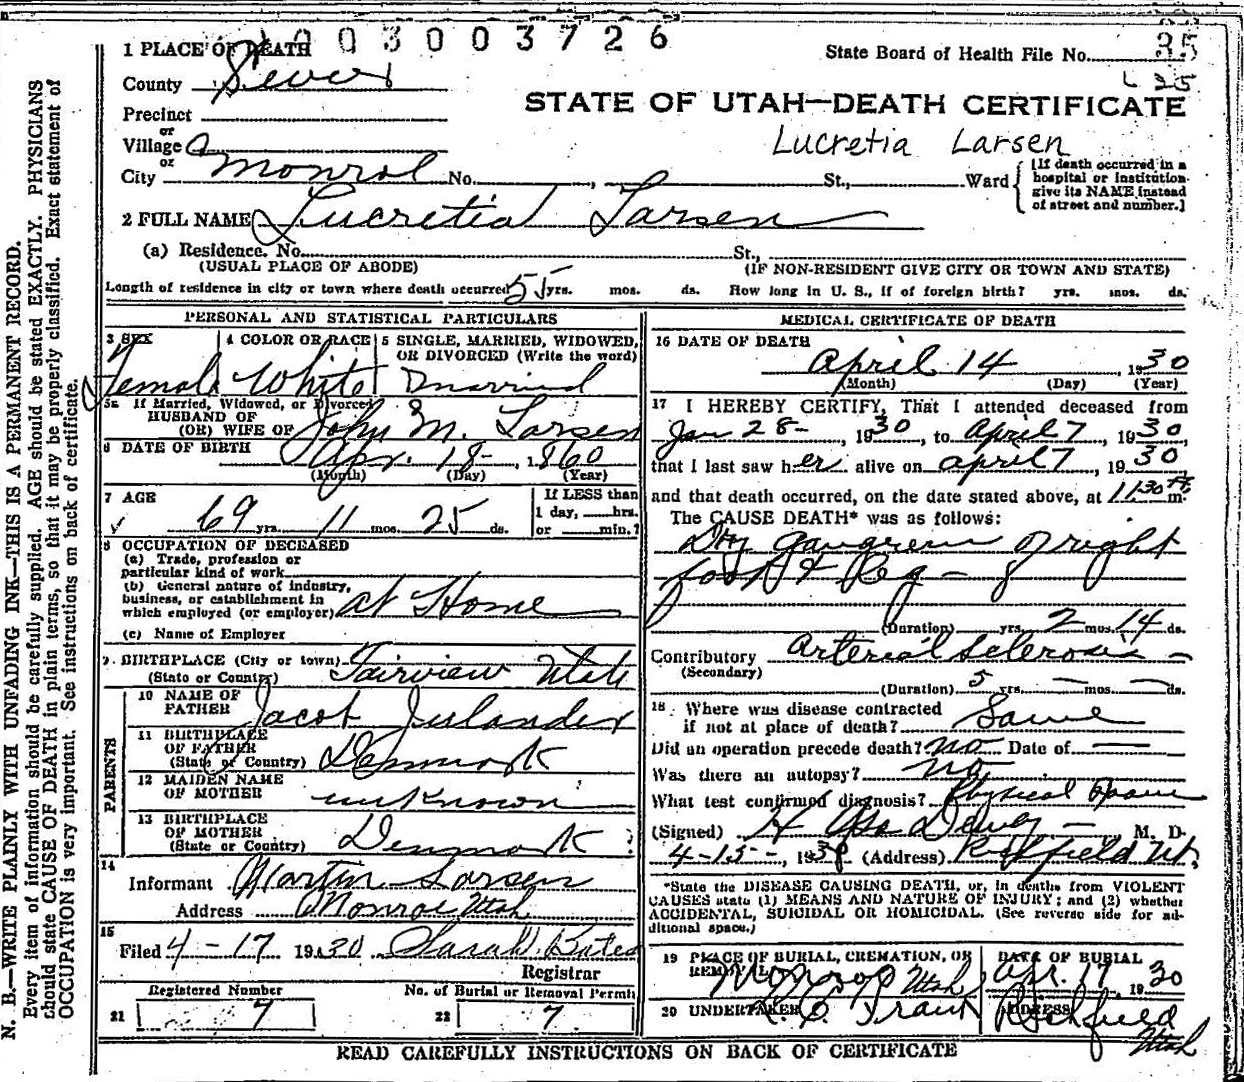 1003003726
1 PLACE OF DEATH
State Board of Health File No. 35
County Sevier
25
STATE OF UTAH—DEATH CERTIFICATE
Precinct
or
Village
Lucretia Larsen
or
City Monroe No. , St., Ward
[If death occurred in a hospital or institution give its NAME instead of street and number.]
2 FULL NAME Lucretia Larsen
(a) Residence. No. St.,
(USUAL PLACE OF ABODE) (IF NON-RESIDENT GIVE CITY OR TOWN AND STATE)
Length of residence in city or town where death occurred 55 yrs. mos. ds. How long in U. S., if of foreign birth? yrs. mos. ds.
PERSONAL AND STATISTICAL PARTICULARS
3 SEX 4 COLOR OR RACE 5 SINGLE, MARRIED, WIDOWED, OR DIVORCED (Write the word)
Female White Married
5a If Married, Widowed, or Divorced
HUSBAND OF
(OR) WIFE OF John M. Larsen
6 DATE OF BIRTH Apr. 18, 1860
(Month) (Day) (Year)
7 AGE If LESS than
1 day, hrs.
69 yrs. 11 mos. 25 ds. or min.?
8 OCCUPATION OF DECEASED
(a) Trade, profession or
particular kind of work
(b) General nature of industry,
business, or establishment in
which employed (or employer) at Home
(c) Name of Employer
9. BIRTHPLACE (City or town) Fairview Utah
(State or Country)
PARENTS
10 NAME OF
FATHER Jacob
11 BIRTHPLACE
OF FATHER
(State or Country) Denmark
12 MAIDEN NAME
OF MOTHER unknown
13 BIRTHPLACE
OF MOTHER
(State or Country) Denmark
14
Informant Martin Larsen
Address Monroe Utah
15
Filed 4-17 1930 Sarah Bates
Registrar
Registered Number No. of Burial or Removal Permit
21 7 22 7
MEDICAL CERTIFICATE OF DEATH
16 DATE OF DEATH
April 14, 1930
(Month) (Day) (Year)
17 I HEREBY CERTIFY, That I attended deceased from
Jan 28-, 1930, to April 7, 1930,
that I last saw her alive on April 7, 1930
and that death occurred, on the date stated above, at 11 30 m.
The CAUSE DEATH* was as follows:
Dry Gangrene of right
foot & leg -
(Duration) yrs. 2 mos. 14 ds.
Contributory Arterial Sclerosis -
(Secondary)
(Duration) 5 yrs. — mos. — ds.
18. Where was disease contracted
if not at place of death? Same
Did an operation precede death? no Date of —
Was there an autopsy? no
What test confirmed diagnosis? Physical Exam
(Signed) H Asa Dewey -, M. D.
4-15-, 1930 (Address) Richfield Ut.
*State the DISEASE CAUSING DEATH, or, in deaths from VIOLENT
CAUSES state (1) MEANS AND NATURE OF INJURY; and (2) whether
ACCIDENTAL, SUICIDAL OR HOMICIDAL. (See reverse side for ad-
ditional space.)
19 PLACE OF BURIAL, CREMATION, OR REMOVAL DATE OF BURIAL
Monroe Utah Apr. 17, 1930
20 UNDERTAKER ADDRESS
Richfield
Utah
READ CAREFULLY INSTRUCTIONS ON BACK OF CERTIFICATE
N. B.—WRITE PLAINLY WITH UNFADING INK—THIS IS A PERMANENT RECORD.
Every item of information should be carefully supplied. AGE should be stated EXACTLY. PHYSICIANS
should state CAUSE OF DEATH in plain terms, so that it may be properly classified. Exact statement of
OCCUPATION is very important. See instructions on back of certificate.